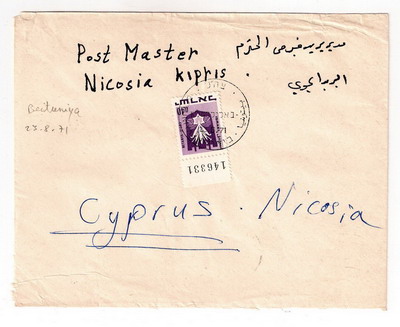 Post Master
Nicosia kipris.
مديريريد قبرص المحترم
البريد الجوي
Beituniya
23.8.71
146331
Cyprus. Nicosia